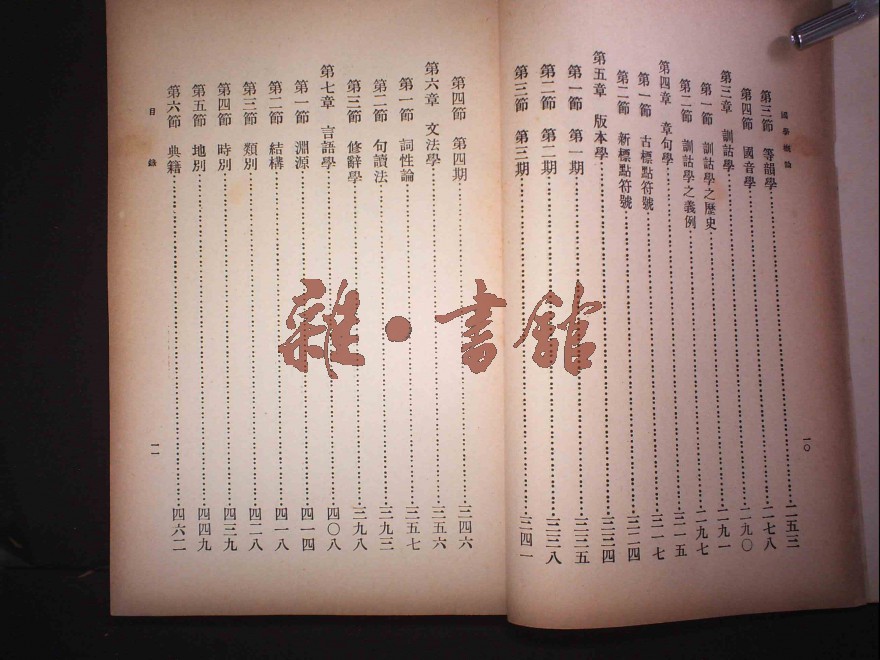 國學概論
一〇
第三節 等韻學……二五三
第四節 國音學……二七八
第三章 訓詁學……二九〇
第一節 訓詁學之歷史……二九一
第二節 訓詁學之義例……二九七
第四章 章句學……三一五
第一節 古標點符號……三一七
第二節 新標點符號……三二四
第五章 版本學……三三四
第一節 第一期……三三五
第二節 第二期……三三八
第三節 第三期……三四一
第四節 第四期……三四六
第六章 文法學……三五六
第一節 詞性論……三五七
第二節 句讀法……三九三
第三節 修辭學……三九八
第七章 言語學……四〇八
第一節 淵源……四一四
第二節 結構……四一八
第三節 類別……四二八
第四節 時別……四三九
第五節 地別……四四九
第六節 典籍……四六二
目錄
一一
雜·書館